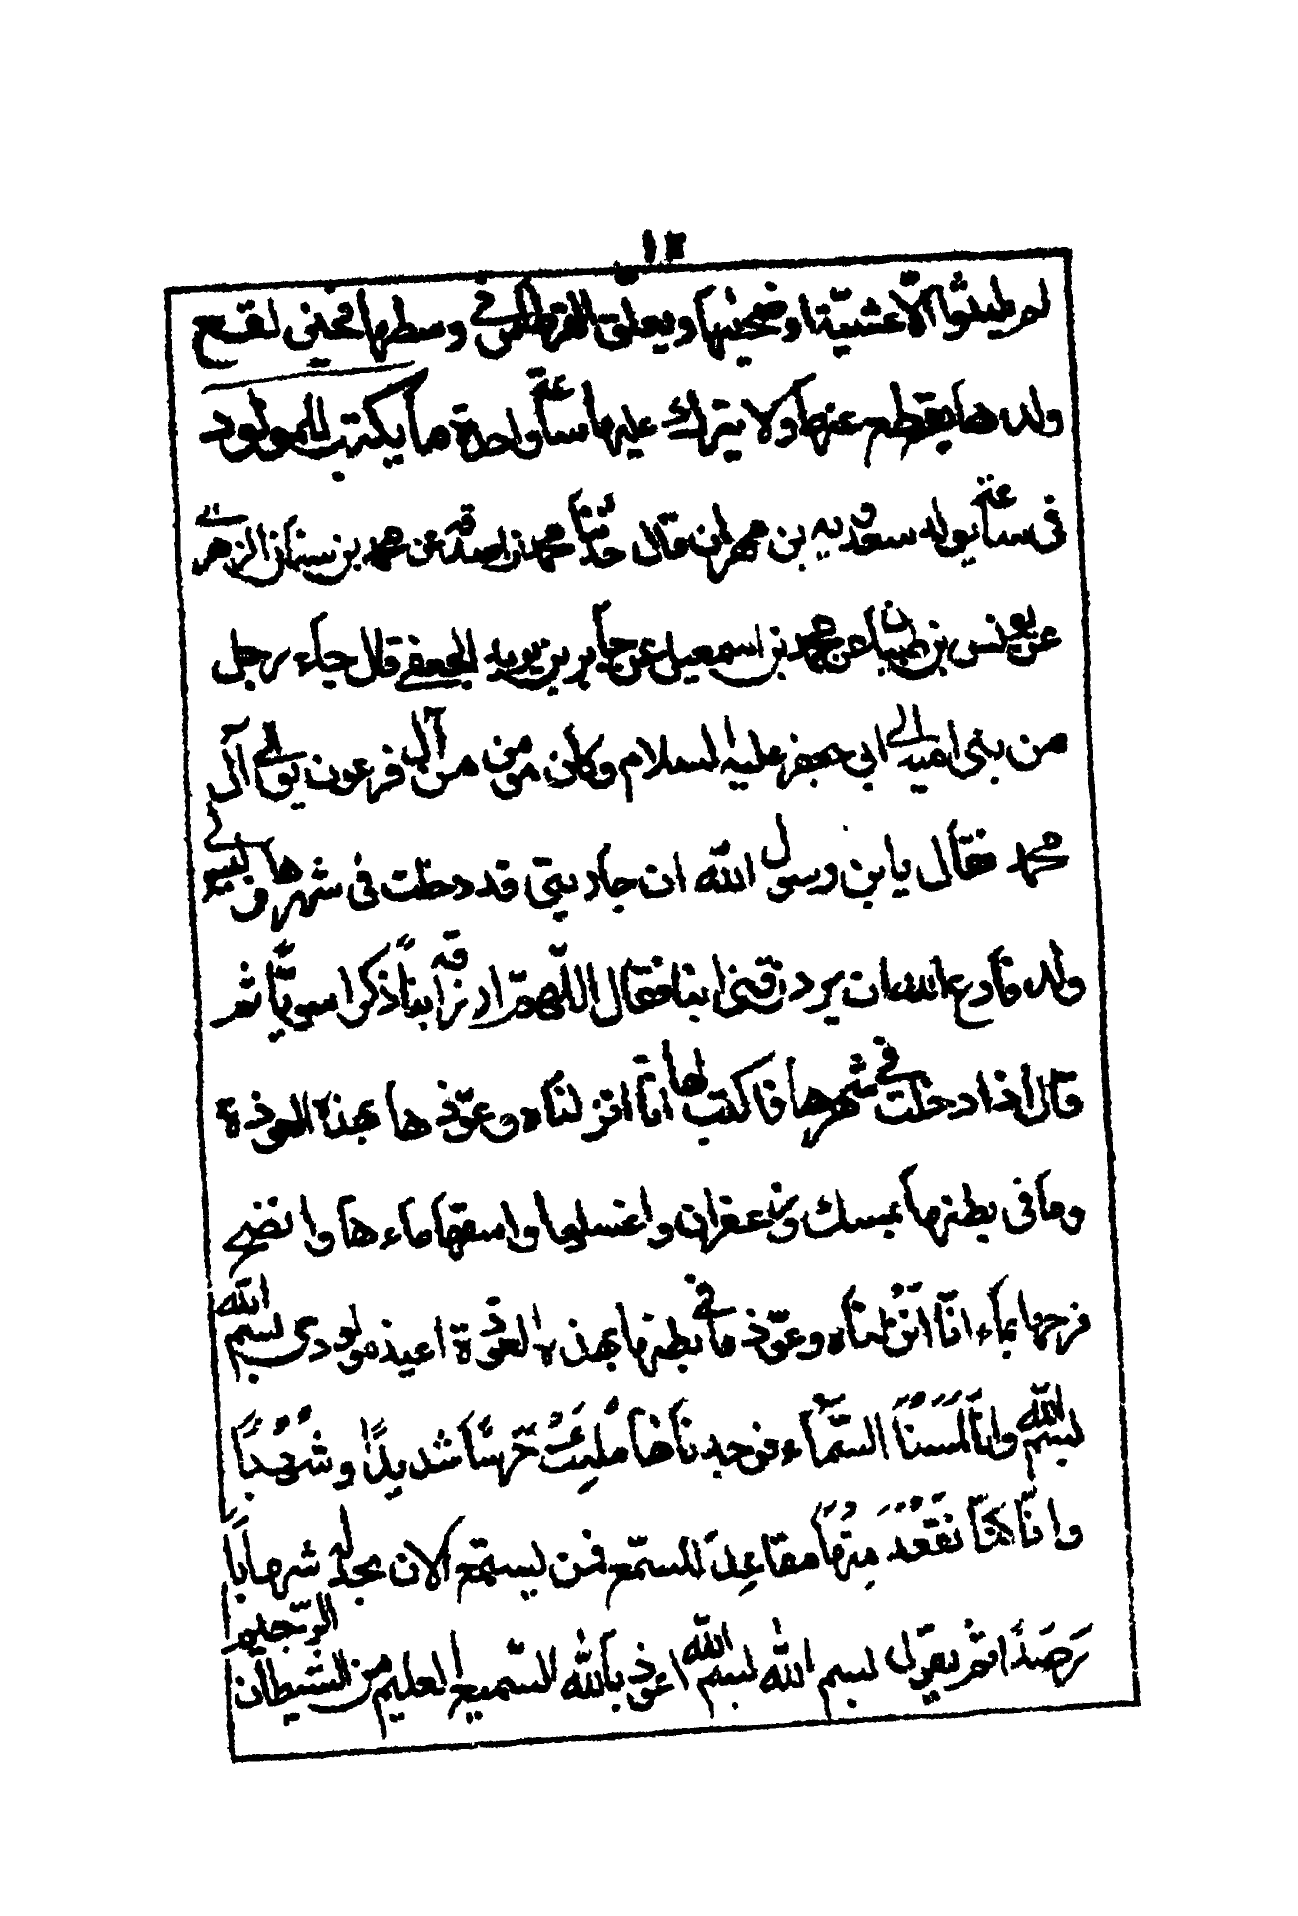 ١٢
لم يلبثوا الّا عشيّة او ضحيٰها ويعلّق القرطاس في وسطها فحين تقع
ولدها يقطع عنها ولا يترك عليها ساعة واحدة ما يكتب للمولود
في ساعته يولد سعدويه بن مهران قال حدّثنا محمد بن صدقة عن محمد بن سنان الزهرى
عن يونس بن ظبيان عن محمد بن اسمعيل عن جابر بن يزيد الجعفي قال جاء رجل
من بنى امية الى ابى جعفر عليه السلام وكان مومن من آل فرعون يوالى آل
محمد فقال يابن رسول الله ان جاريتى قد دخلت فى شهرها وليس لي
ولد فادع الله ان يرزقنى ابنا فقال اللّهمّ ارزقه ابناً ذكرا سويّاً ثم
قال اذا دخلت في شهرها فاكتب لها انّا انزلناه وعوّذها بهذه العوذة
وما فى بطنها بمسك وزعفران واغسلها واسقها ماءها وانضح
فرجها بماء انّا اَنْزلناه وعوّذ ما في بطنها بهذه العوذة اعيذ مولودى بسم الله
بسم الله وانّا لَمَسْنَا السّمَاء فوجدناها مُلِئَتْ حَرَسًا شديدًا وشُهُبًا
وانّا كنّا نَقْعُدُ مِنْهَا مقاعِدَ للسّمع فمن يستمع الان يجد له شهابًا
رَصَدًا ثم يقول بسم الله بسم الله اعوذ بالله السّميع العليم من الشيطان الرّجيم